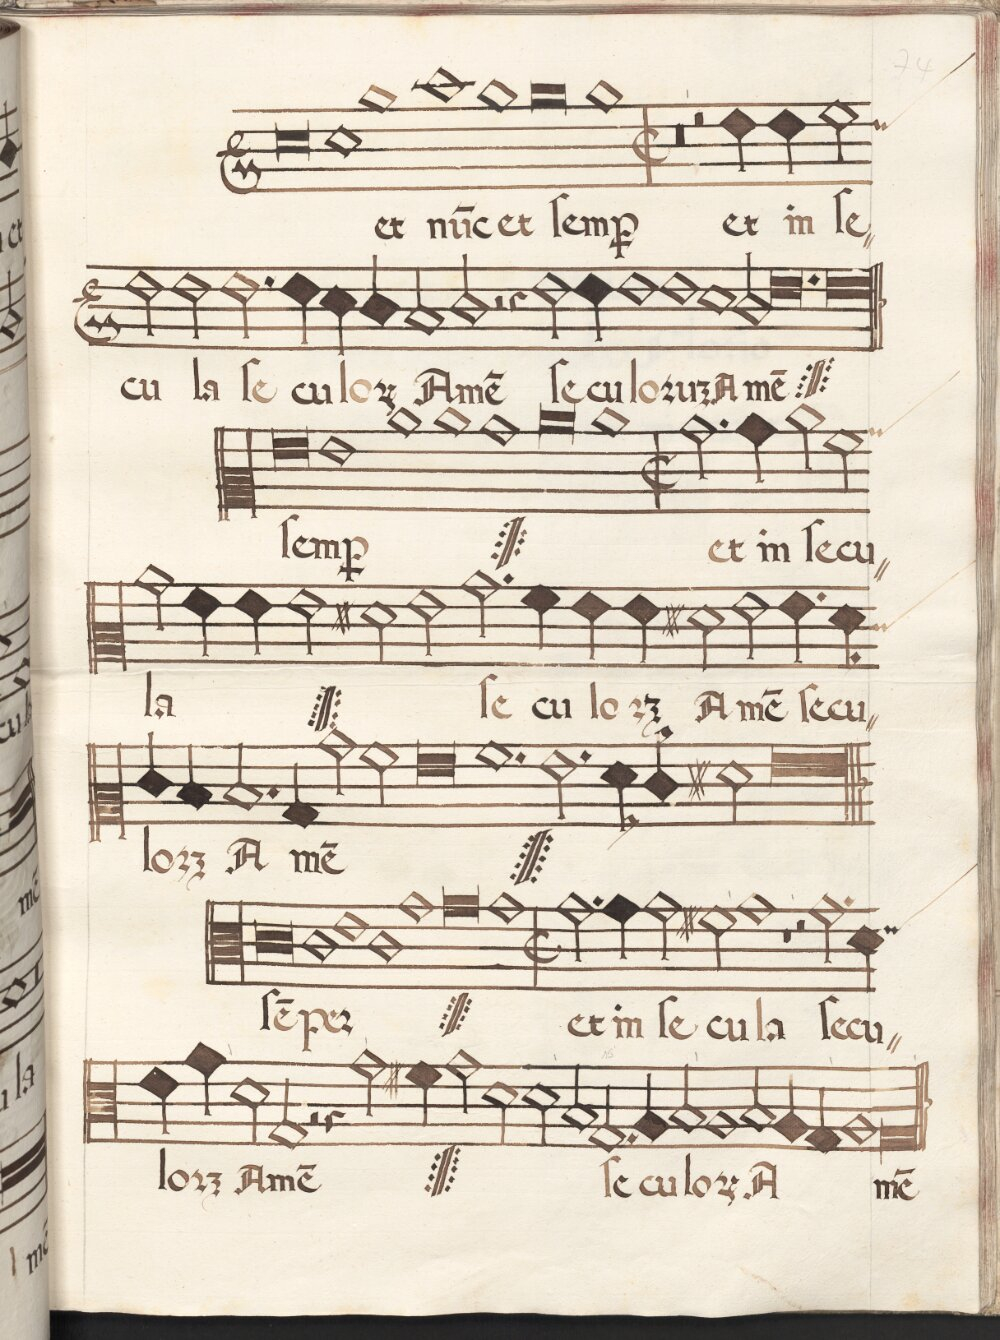 74
et nūc et semꝑ et in se
cu la se cu lorꝝ Amē se cu lorum Amē
semꝑ et in secu
la se cu lo rꝝ A mē secu
lorꝝ A mē
sēper et in se cu la secu
lorꝝ Amē se cu lorꝝ A mē